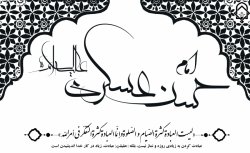 امام
حسن عسکری علیه‌السلام
«لیست العبادة کثرة الصیام و الصلوة و انما العبادة کثرة التفکر فی امر الله»
عبادت کردن به زیادی روزه و نماز نیست، بلکه (حقیقت) عبادت، زیاد در کار خدا اندیشیدن است